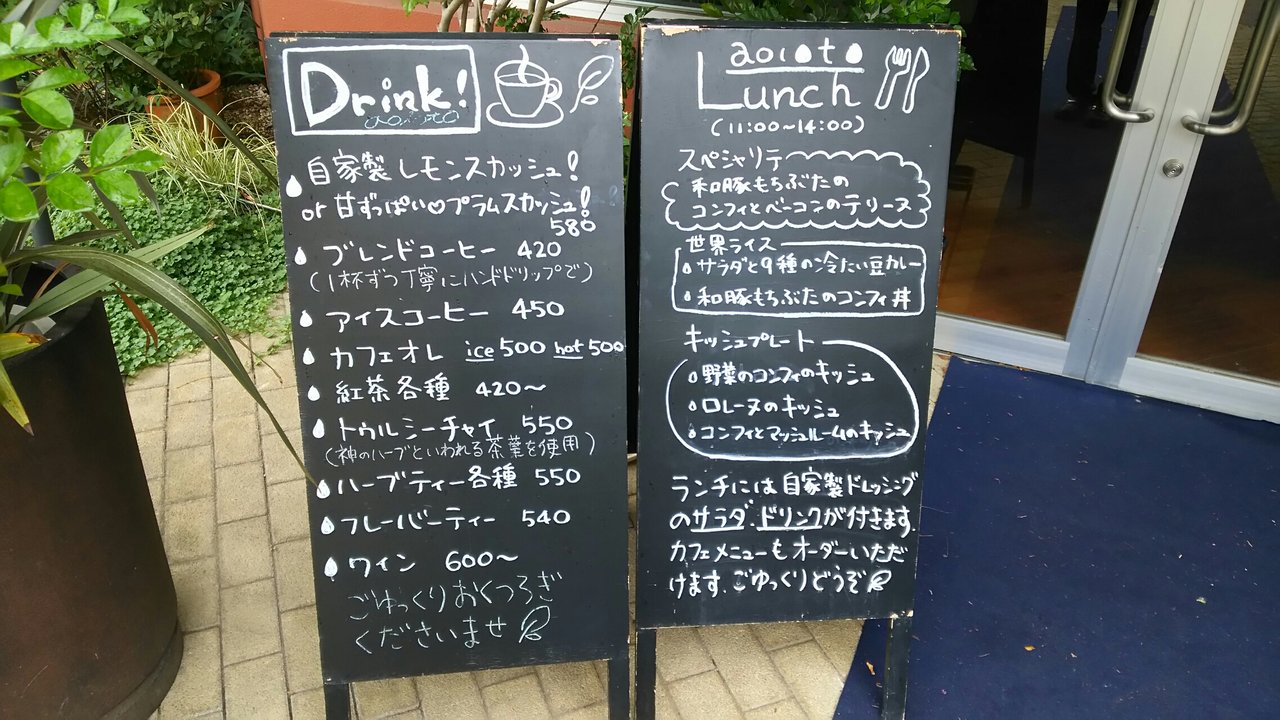 Drink!
aoioto
自家製レモンスカッシュ!
or 甘ずっぱい♡プラムスカッシュ!
580
ブレンドコーヒー 420
(1杯ずつ丁寧にハンドドリップで)
アイスコーヒー 450
カフェオレ ice 500 hot 500
紅茶各種 420〜
トゥルシーチャイ 550
(神のハーブといわれる茶葉を使用)
ハーブティー各種 550
フレーバーティー 540
ワイン 600〜
ごゆっくりおくつろぎ
くださいませ
aoioto
Lunch
(11:00~14:00)
スペシャリテ
和豚もちぶたの
コンフィとベーコンのテリーヌ
世界ライス
サラダと9種の冷たい豆カレー
和豚もちぶたのコンフィ丼
キッシュプレート
野菜のコンフィのキッシュ
ロレーヌのキッシュ
コンフィとマッシュルームのキッシュ
ランチには自家製ドレッシング
のサラダ、ドリンクが付きます。
カフェメニューもオーダーいただ
けます。ごゆっくりどうぞ